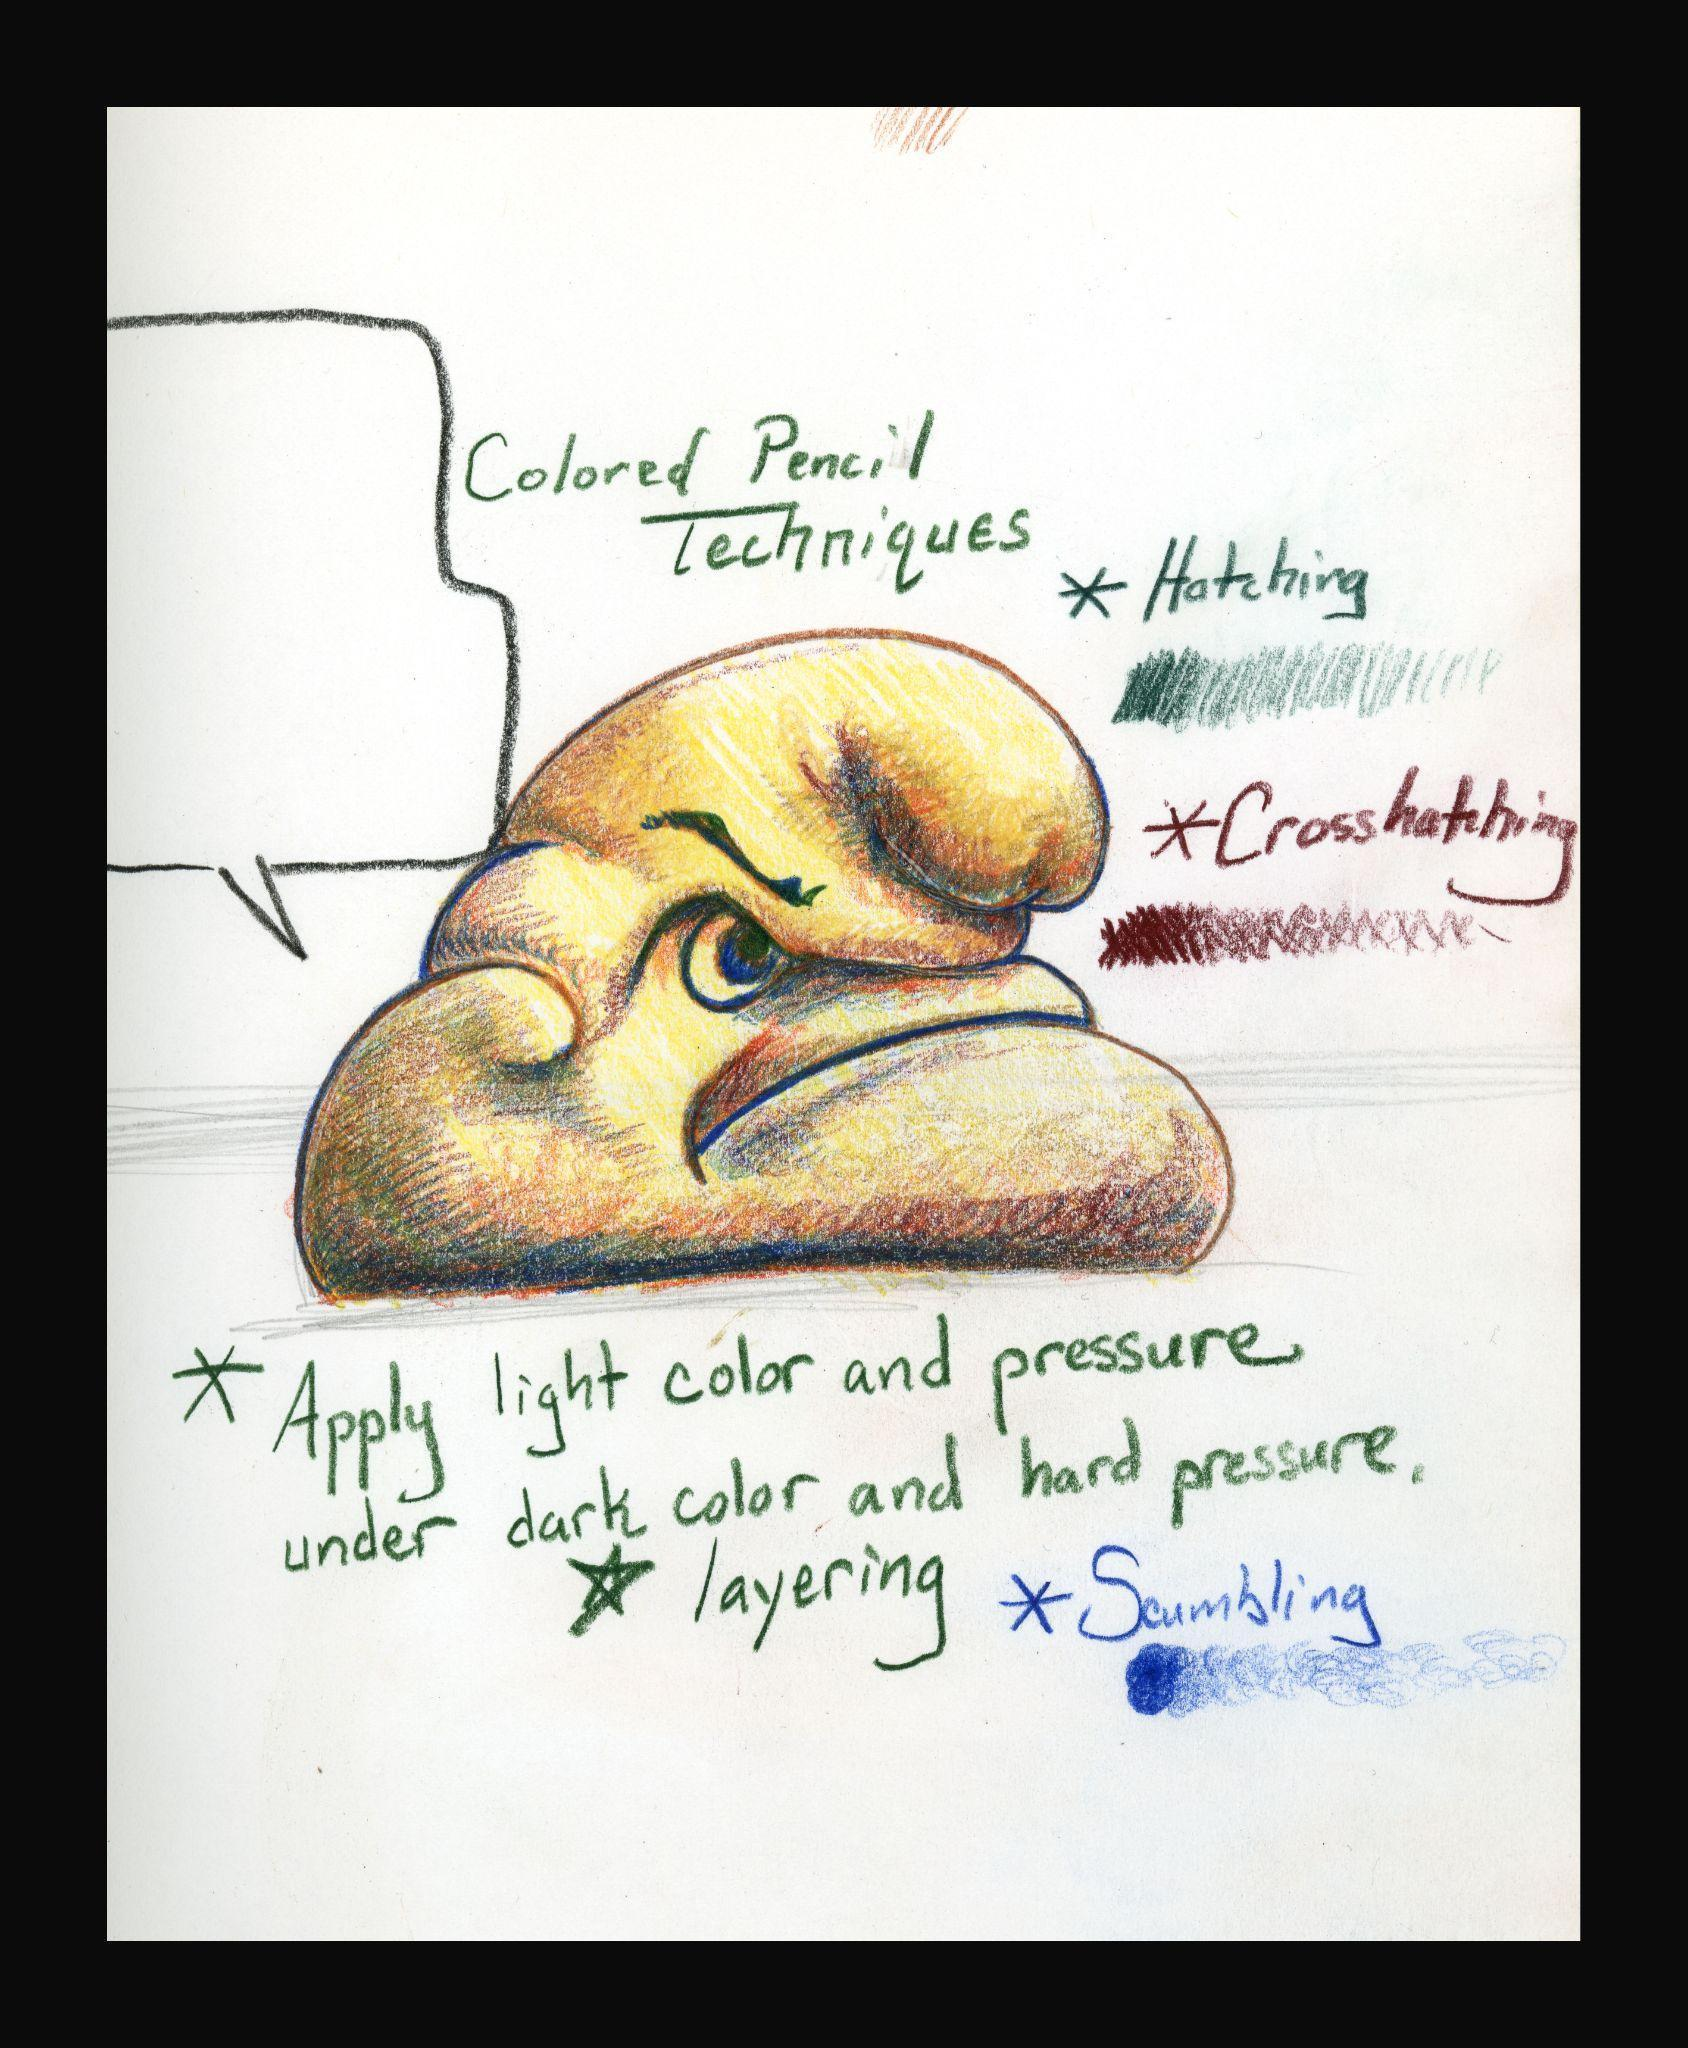 Colored Pencil
Techniques
* Hatching
* Crosshatching
* Apply light color and pressure
under dark color and hard pressure.
☆ layering
* Scumbling